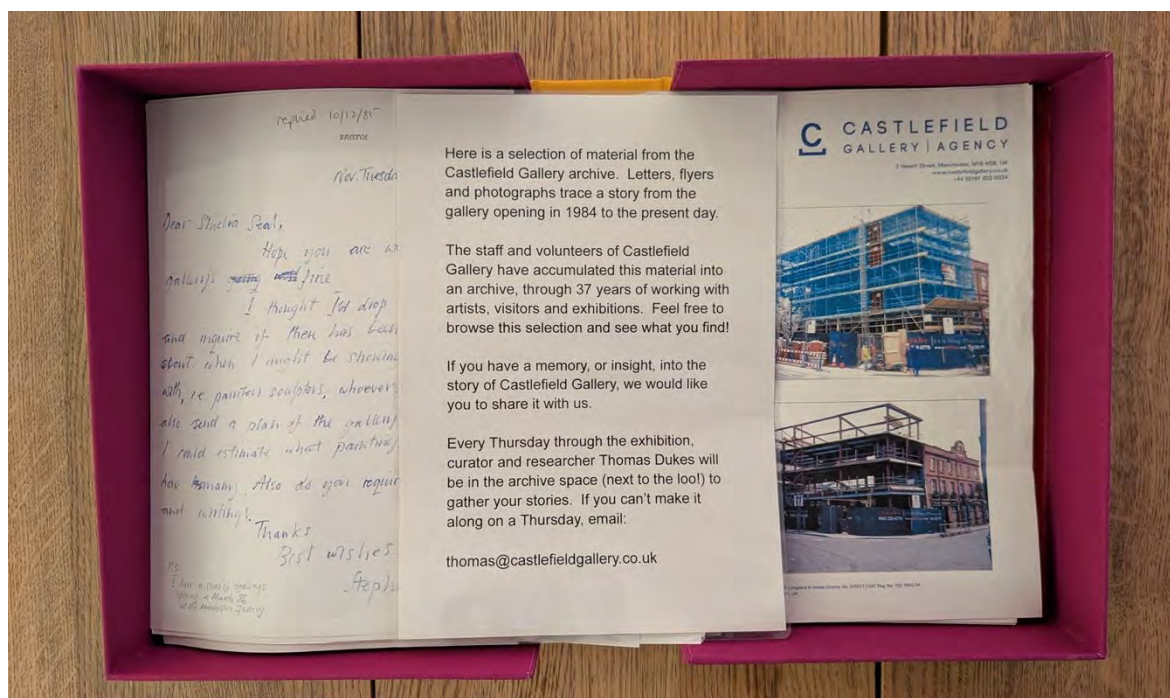 replied 10/12/85
BRISTOL
Nov. Tuesda
Dear Sheelia Seal,
Hope you are w
gallery's fine
I thought I'd drop
and inquire if there has been
about when I might be showing
with, i.e painters sculptors, whoever
also send a plan of the gallery
I could estimate what painting
how many. Also do you requir
and writings.
Thanks
Best wishes
Steph
P.S.
I have a show of drawings
Here is a selection of material from the
Castlefield Gallery archive. Letters, flyers
and photographs trace a story from the
gallery opening in 1984 to the present day.
The staff and volunteers of Castlefield
Gallery have accumulated this material into
an archive, through 37 years of working with
artists, visitors and exhibitions. Feel free to
browse this selection and see what you find!
If you have a memory, or insight, into the
story of Castlefield Gallery, we would like
you to share it with us.
Every Thursday through the exhibition,
curator and researcher Thomas Dukes will
be in the archive space (next to the loo!) to
gather your stories. If you can't make it
along on a Thursday, email:
thomas@castlefieldgallery.co.uk
CASTLEFIELD
GALLERY | AGENCY
2 Hewitt Street, Manchester, M15 4GB, UK
www.castlefieldgallery.co.uk